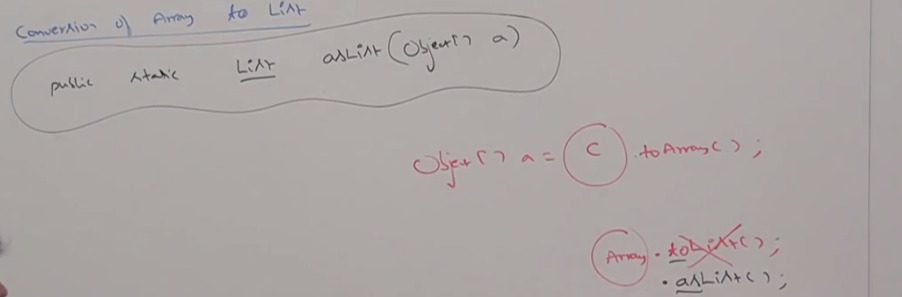 Conversion of Array to List
public static List asList(Object[] a)
Object[] a = C .toArray();
Array . toList();
. asList();